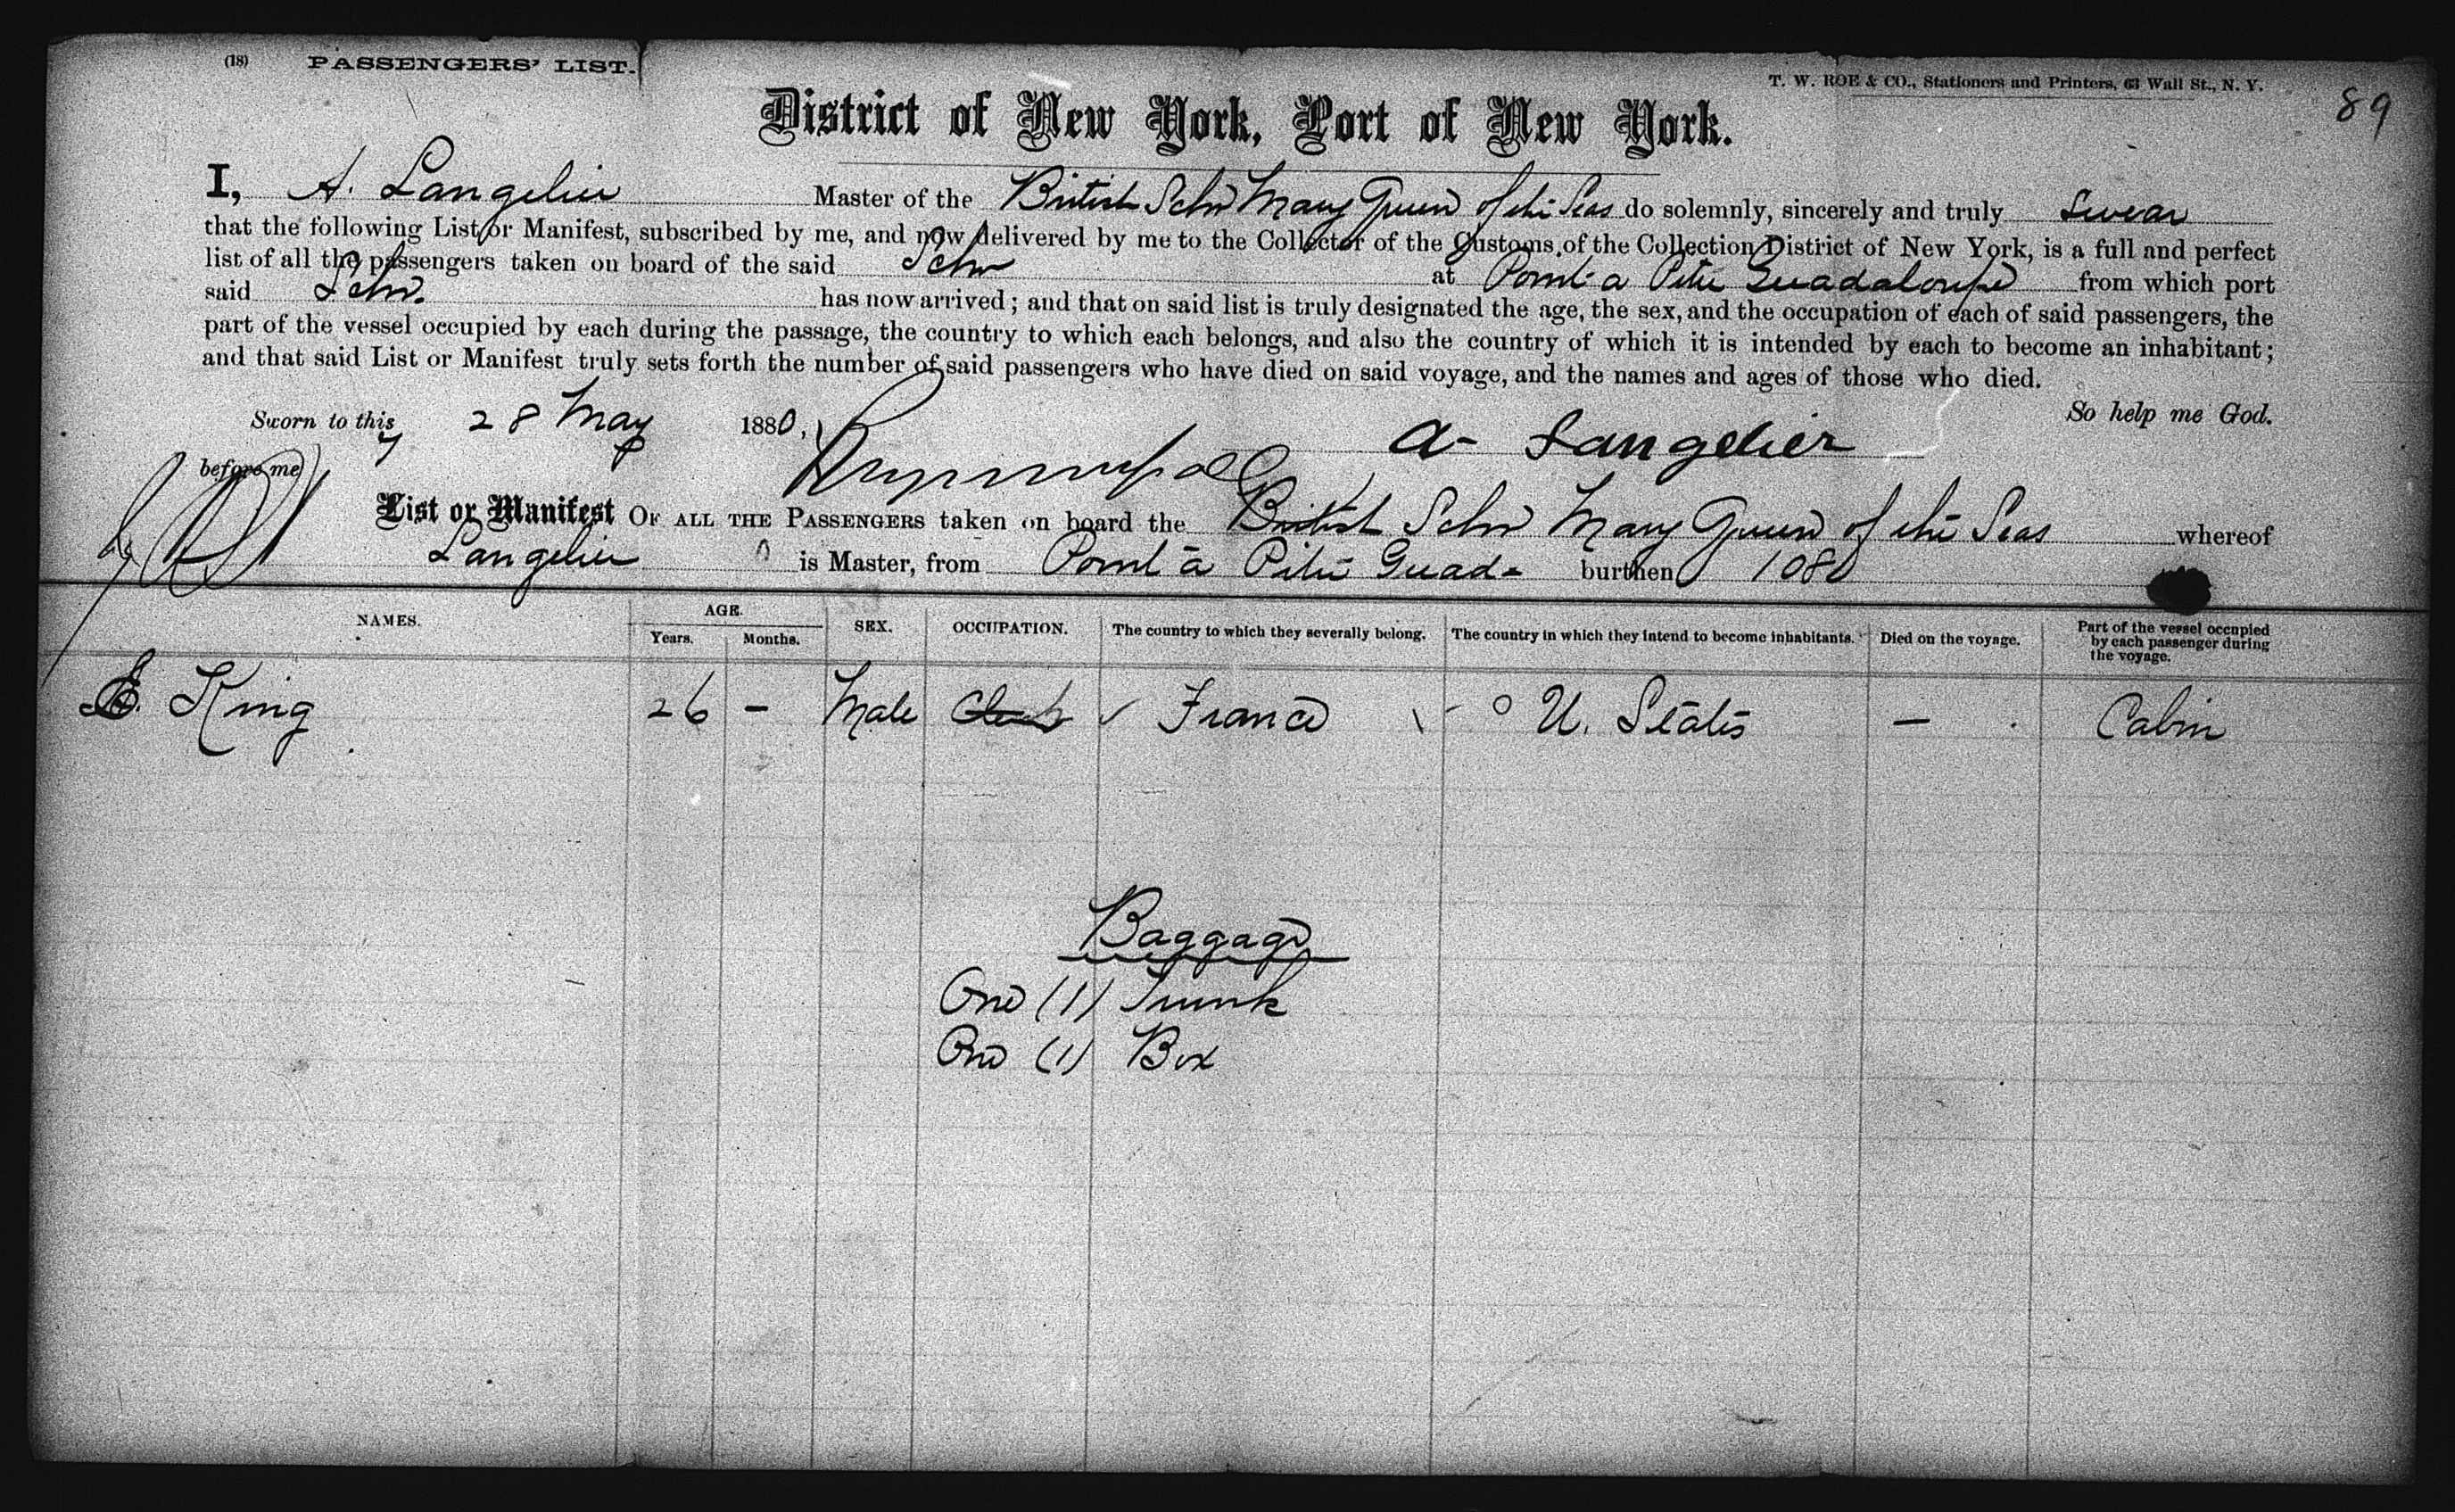 (18) PASSENGERS' LIST.
T. W. ROE & CO., Stationers and Printers, 63 Wall St., N. Y.
89
District of New York, Port of New York.
I, A. Langelier Master of the British Schr Mary Queen of the Seas do solemnly, sincerely and truly swear
that the following List or Manifest, subscribed by me, and now delivered by me to the Collector of the Customs of the Collection District of New York, is a full and perfect
list of all the passengers taken on board of the said Schr at Point a Pitre Guadaloupe from which port
said Schr. has now arrived; and that on said list is truly designated the age, the sex, and the occupation of each of said passengers, the
part of the vessel occupied by each during the passage, the country to which each belongs, and also the country of which it is intended by each to become an inhabitant;
and that said List or Manifest truly sets forth the number of said passengers who have died on said voyage, and the names and ages of those who died.
So help me God.
Sworn to this 28 May 1880,
A- Langelier
before me
List or Manifest OF ALL THE PASSENGERS taken on board the British Schr Mary Queen of the Seas whereof
Langelier is Master, from Point a Pitre Guad- burthen 108
NAMES. AGE. Years. Months. SEX. OCCUPATION. The country to which they severally belong. The country in which they intend to become inhabitants. Died on the voyage. Part of the vessel occupied by each passenger during the voyage.
E. King 26 - Male Clerk France U. States - Cabin
Baggage
One (1) Trunk
One (1) Box